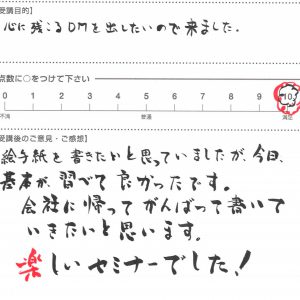 受講目的】
心に残るDMを出したいので来ました。
点数に○をつけて下さい
0 1 2 3 4 5 6 7 8 9 10
不満 普通 満足
受講後のご意見・ご感想】
絵手紙を書きたいと思っていましたが、今日、
基本が、習べて良かったです。
会社に帰ってがんばって書いて
いきたいと思います。
楽しいセミナーでした!